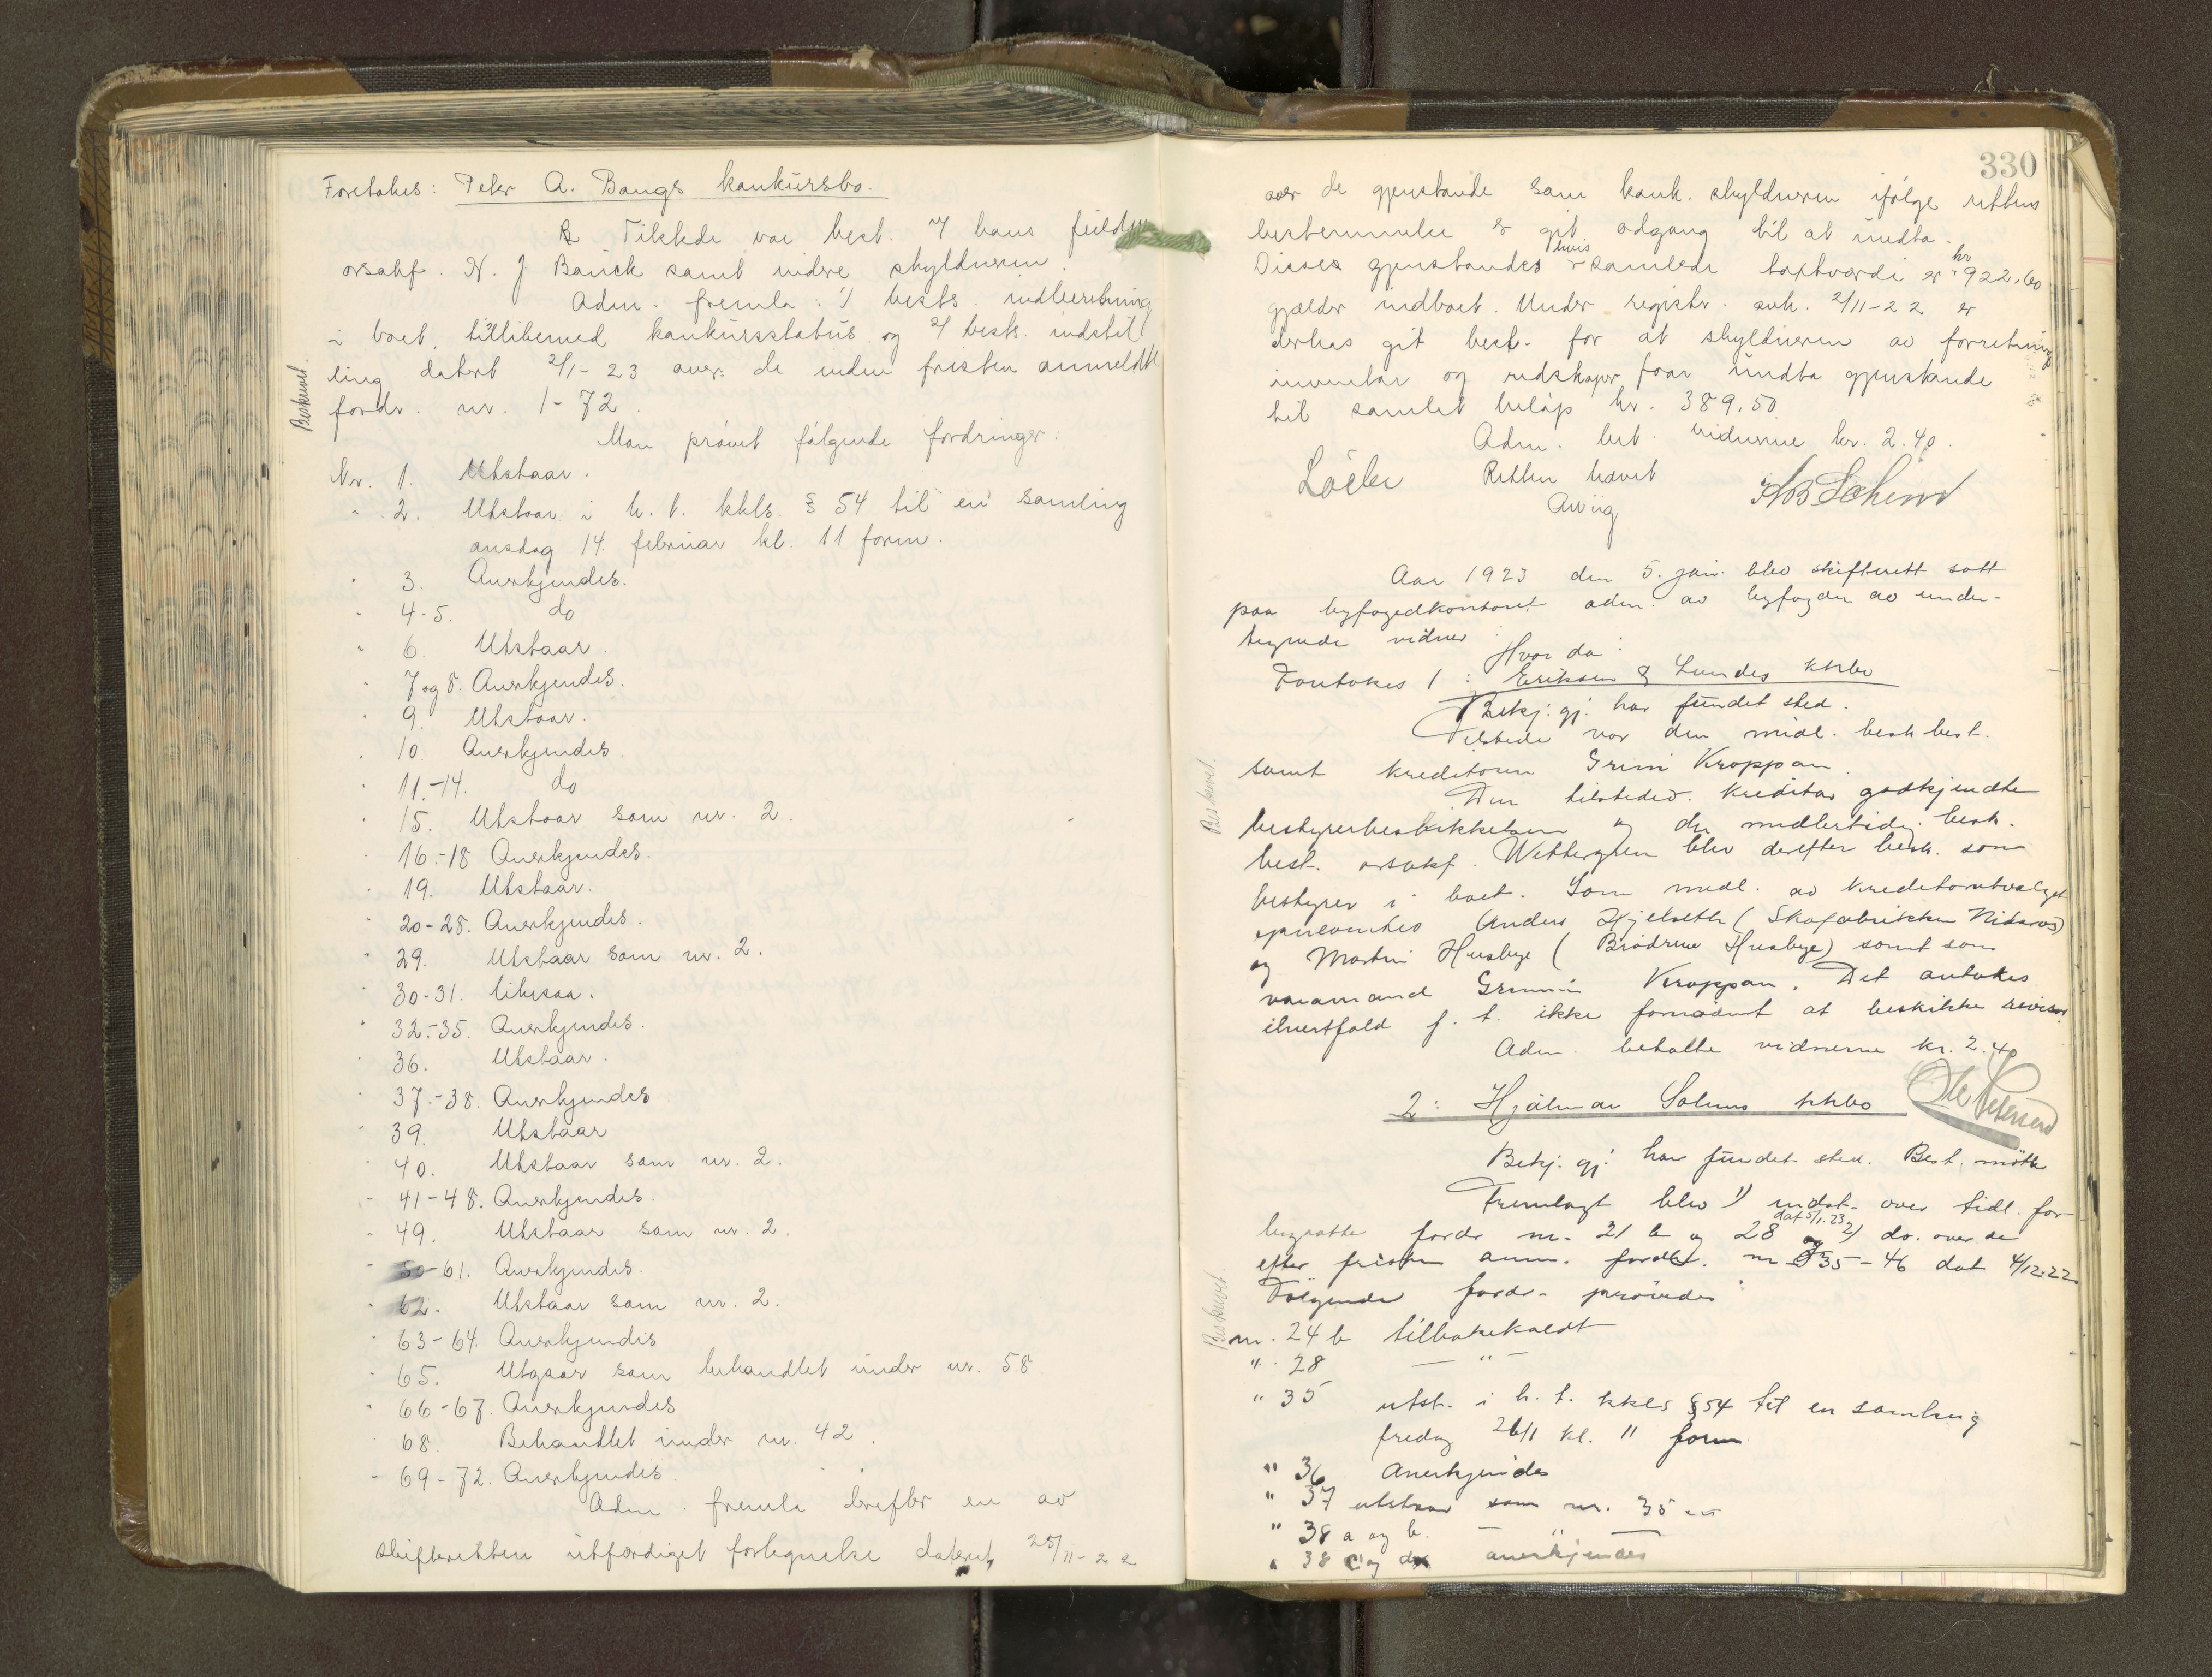 Foretakes: Peter A. Bangs konkursbo.
Tilstede var best. v/ hans fuldm
orsakf. N. J. Bauck samt videre skyldneren.
Adm. fremla: 1/ bests. indberetning
i boet, tillikemed konkursstatus og 2/ bests. indstil
ling datert 2/1-23 over de inden fristen anmeldte
fordr. nr. 1-72.
Beskrevet.
Man prøvet følgende fordringer:
Nr. 1. Utstaar.
" 2. Utstaar i h. t. kkls. § 54 til en samling
onsdag 14. februar kl. 11 form.
" 3. Anerkjendes.
" 4-5. do
" 6. Utstaar.
" 7 og 8. Anerkjendes.
" 9. Utstaar.
" 10. Anerkjendes.
" 11.-14. do
" 15. Utstaar som nr. 2.
" 16.-18 Anerkjendes.
" 19. Utstaar.
" 20-28. Anerkjendes.
" 29. Utstaar som nr. 2.
" 30-31. likesaa.
" 32.-35. Anerkjendes.
" 36. Utstaar.
" 37.-38. Anerkjendes
" 39. Utstaar
" 40. Utstaar som nr. 2.
" 41-48. Anerkjendes.
" 49. Utstaar som nr. 2.
" 50-61. Anerkjendes.
" 62. Utstaar som nr. 2.
" 63-64. Anerkjendes
" 65. Utgaar som behandlet under nr. 58.
" 66-67. Anerkjendes
" 68. Behandlet under nr. 42.
" 69-72. Anerkjendes.
Adm. fremla derefter en av
skifteretten utfærdiget fortegnelse datert, 25/11-22
330
over de gjenstande som konk. skyldneren ifølge rettens
bestemmelse er git adgang til at undta.
Disses gjenstandes hvis samlede takstværdi er kr 922,60
gjælder indboet. Under registr. avh. 2/11-22 er
derhos git best. for at skyldneren av forretnings
inventar og redskaper faar undta gjenstande
til samlet beløp kr. 389,50.
Adm. bet. vidnerne kr. 2.40.
Retten hævet
Aar 1923 den 5. jan. blev skifterett satt
paa byfogedkontoret adm. av byfogden av under-
tegnede vidner
Hvor da:
Foretakes 1: Eriksen & Lundes kkbo
Bekj. gj. har fundet sted.
Tilstede var den midl. besk best.
samt kreditoren Grim Kroppan.
Beskrevet.
Den tilstedev. kreditor godkjendte
bestyrerbeskikkelsen og den midlertidig besk.
best. orsakf. Wettergren blev derefter besk. som
bestyrer i boet. Som medl. av kreditorutvalget
opnevntes Anders Hjelseth (Skofabrikken Nidaros)
og Martin Husbye (Brødrene Husbye) samt som
varamand Grim Kroppan. Det antokes
ihvertfald f. t. ikke fornødent at beskikke revisor.
Adm. betalte vidnerne kr. 2.40
2: Hjalmar Solums kkbo
Bekj. gj. har fundet sted. Best. møtte
Fremlagt blev 1) indst. over tidl. for-
dat 5/1.23
fordr nr. 21 b og 28 og 2) do. over de
efter fristen anm. fordr. nr 35-46 dat 4/12.22
Følgende fordr. prøvedes
Beskrevet.
nr. 24 b tilbakekaldt
" 28 — " —
" 35 utst. i h. t. kkls §54 til en samling
fredag 26/1 kl. 11 form
" 36 Anerkjendes
" 37 utstaar som nr. 35
" 38 a og b. — " —
" 38 c og d anerkjendes